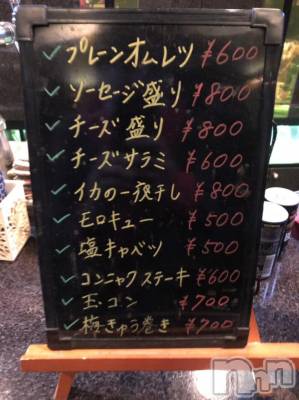 ✓プレーンオムレツ ¥600
✓ソーセージ盛り ¥800
✓チーズ盛り ¥800
✓チーズサラミ ¥600
✓イカの一夜干し ¥800
✓モロキュー ¥500
✓塩キャベツ ¥500
✓コンニャクステーキ ¥600
✓玉コン ¥700
✓梅きゅう巻き ¥700